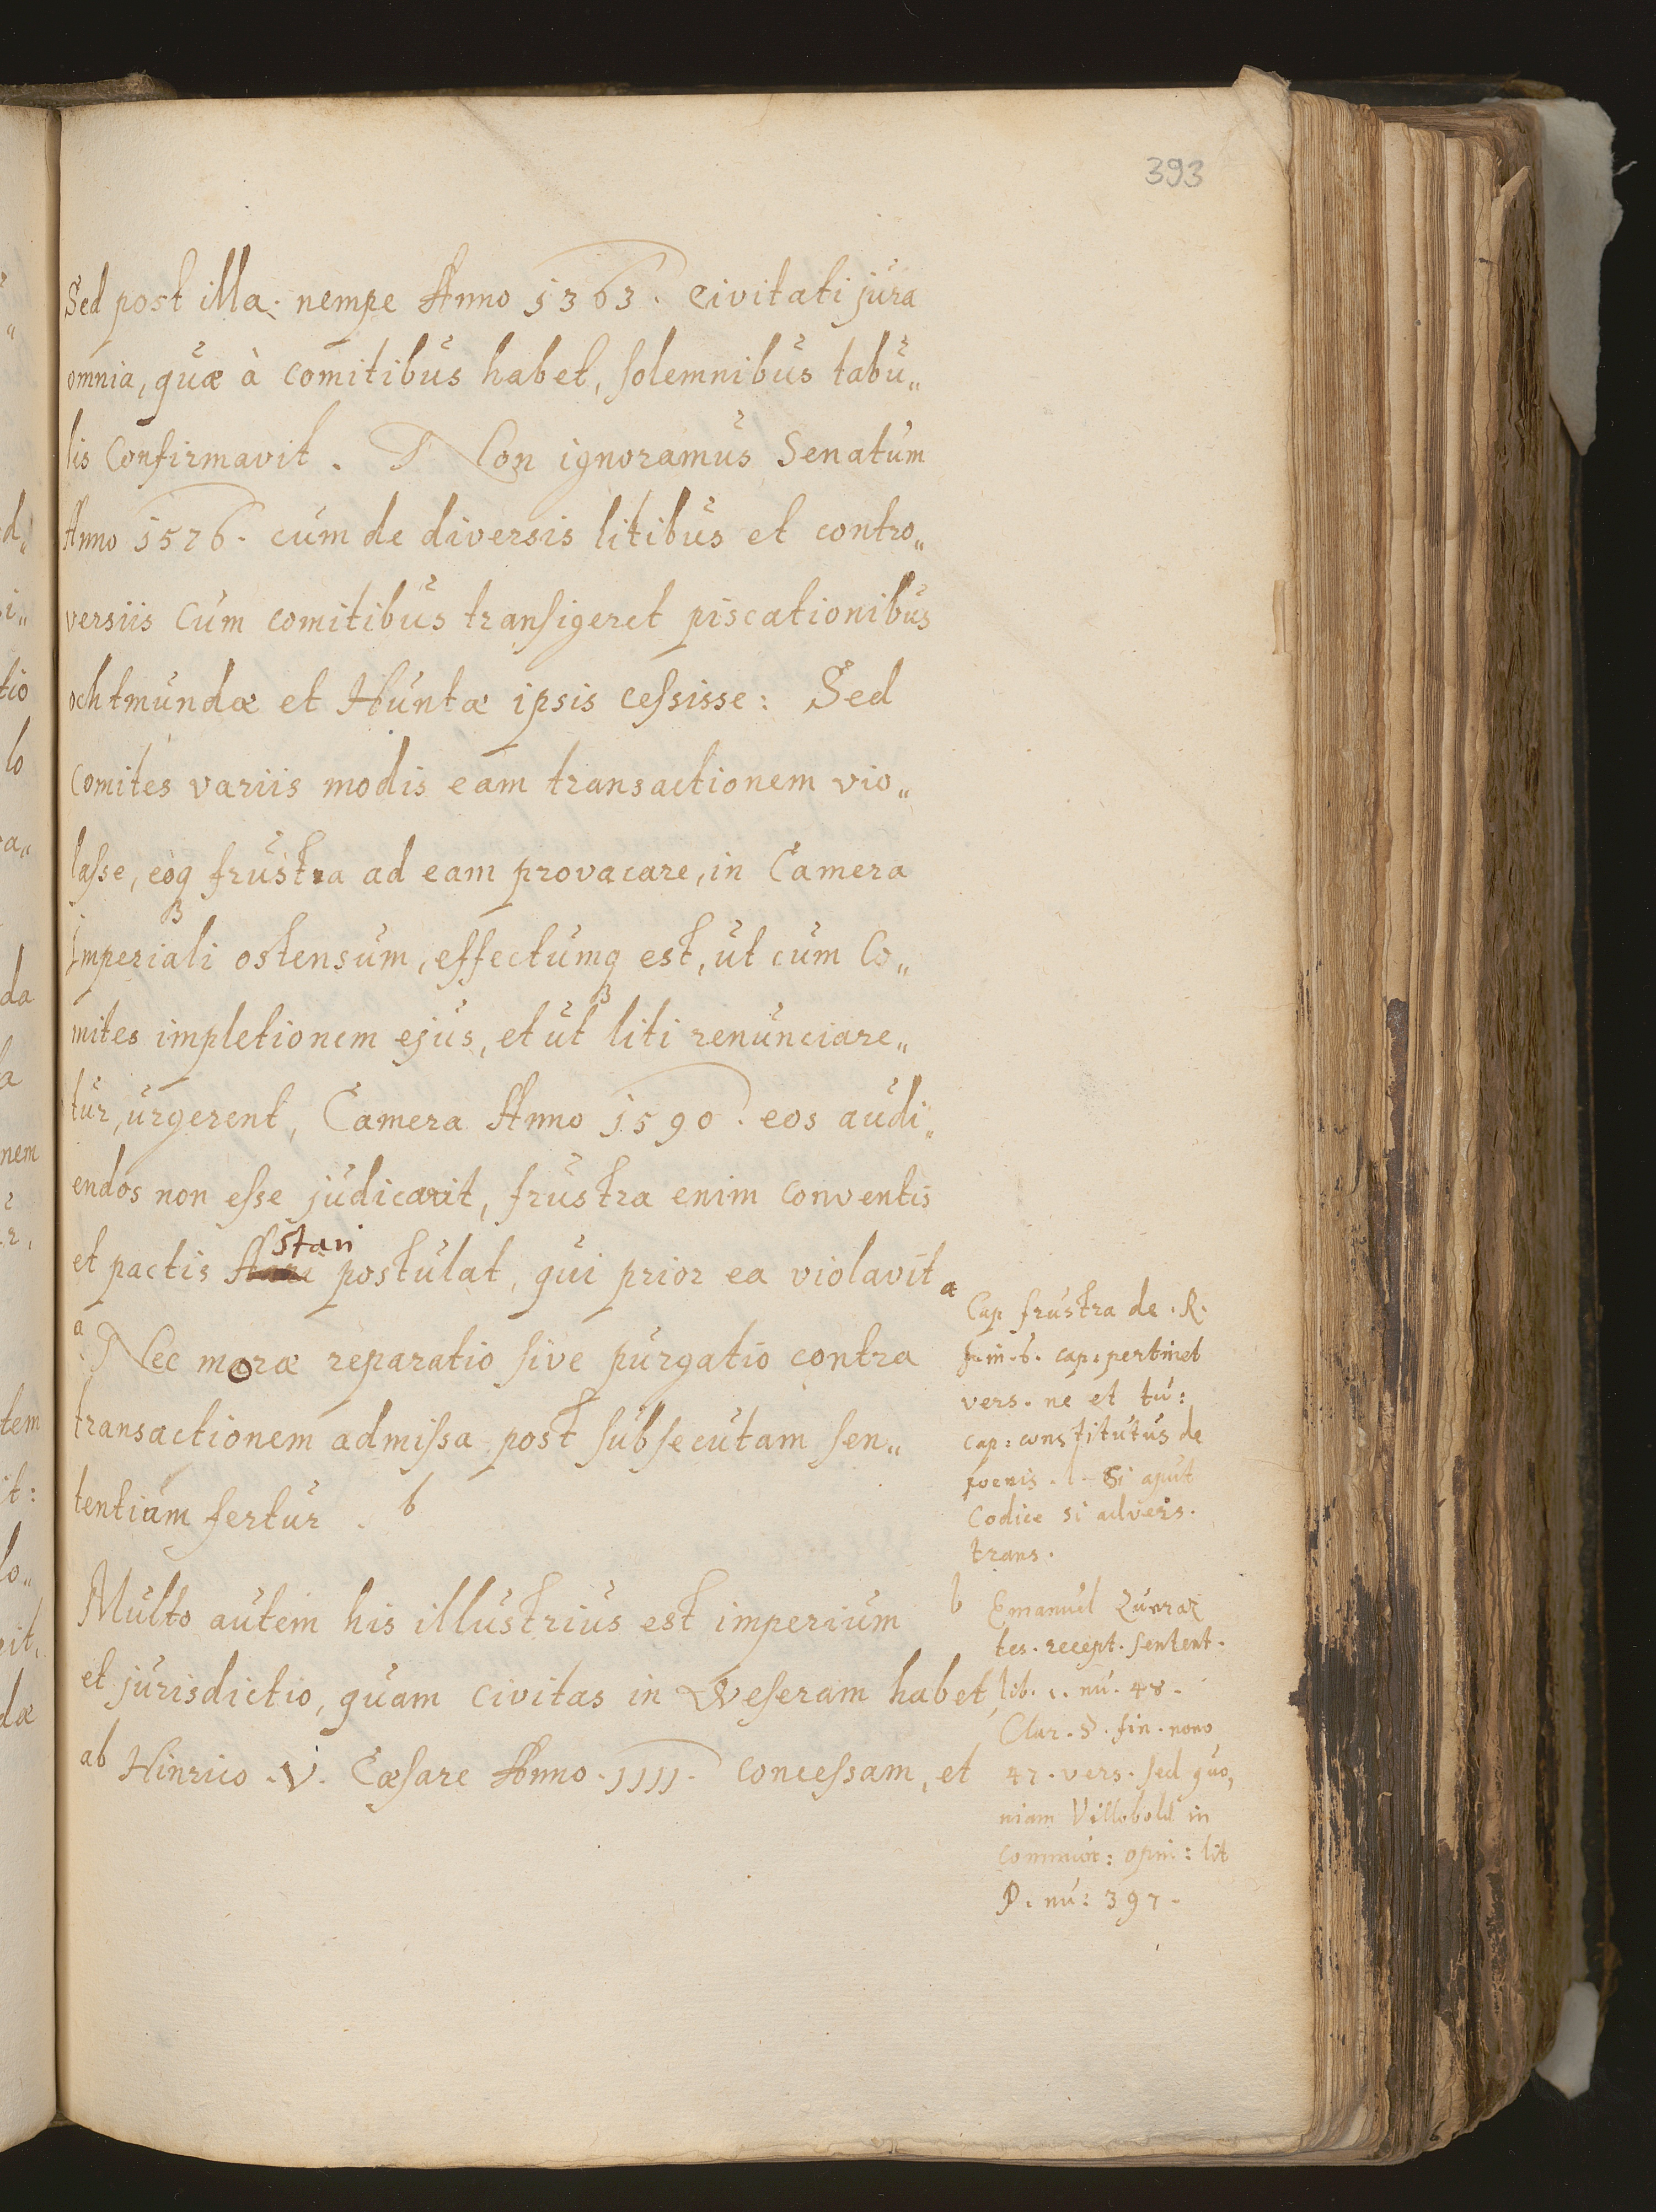 393
Sed post illa: nempe Anno 1363. Civitati jura
omnia, quæ à Comitibus habet, solemnibus tabu„
lis Confirmavit. Non ignoramus Senatum
Anno 1576. cum de diversis litibus et contro„
versiis Cum comitibus transigeret piscationibus
ochtmundæ et Huntæ ipsis cessisse: Sed
Comites variis modis eam transactionem vio„
lasse, eosq frustra ad eam provacare, in Camera
Imperiali ostensum, effectumq est, ut cum Co„
mites impletionem ejus, et ut liti renunciare„
tur, urgerent, Camera Anno 1590. eos audi„
endos non esse judicarit, frustra enim conventis
et pactis stari postulat, qui prior ea violavit a
a Nec moræ reparatio sive purgatio contra
transactionem admissa post subsecutam sen„
tentiam fertur. b
Multo autem his illustrius est imperium
et jurisdictio, quam Civitas in Weseram habet,
ab Hinrico .V. Cæsare Anno .1111. Concessam, et
Cap frustra de . R.
in . 6. cap: pertinet
vers. ne et tu:
Cap: constitutus de
poenis. l. Si aput
Codice si advers.
trans.
b Emanuel
tes. recept. sentent.
lib. 1. nu. 48.
Clar. §. fin. nono
47. vers. sed quo„
niam Villobold in
Commun: opin: lit
P. nu: 397.